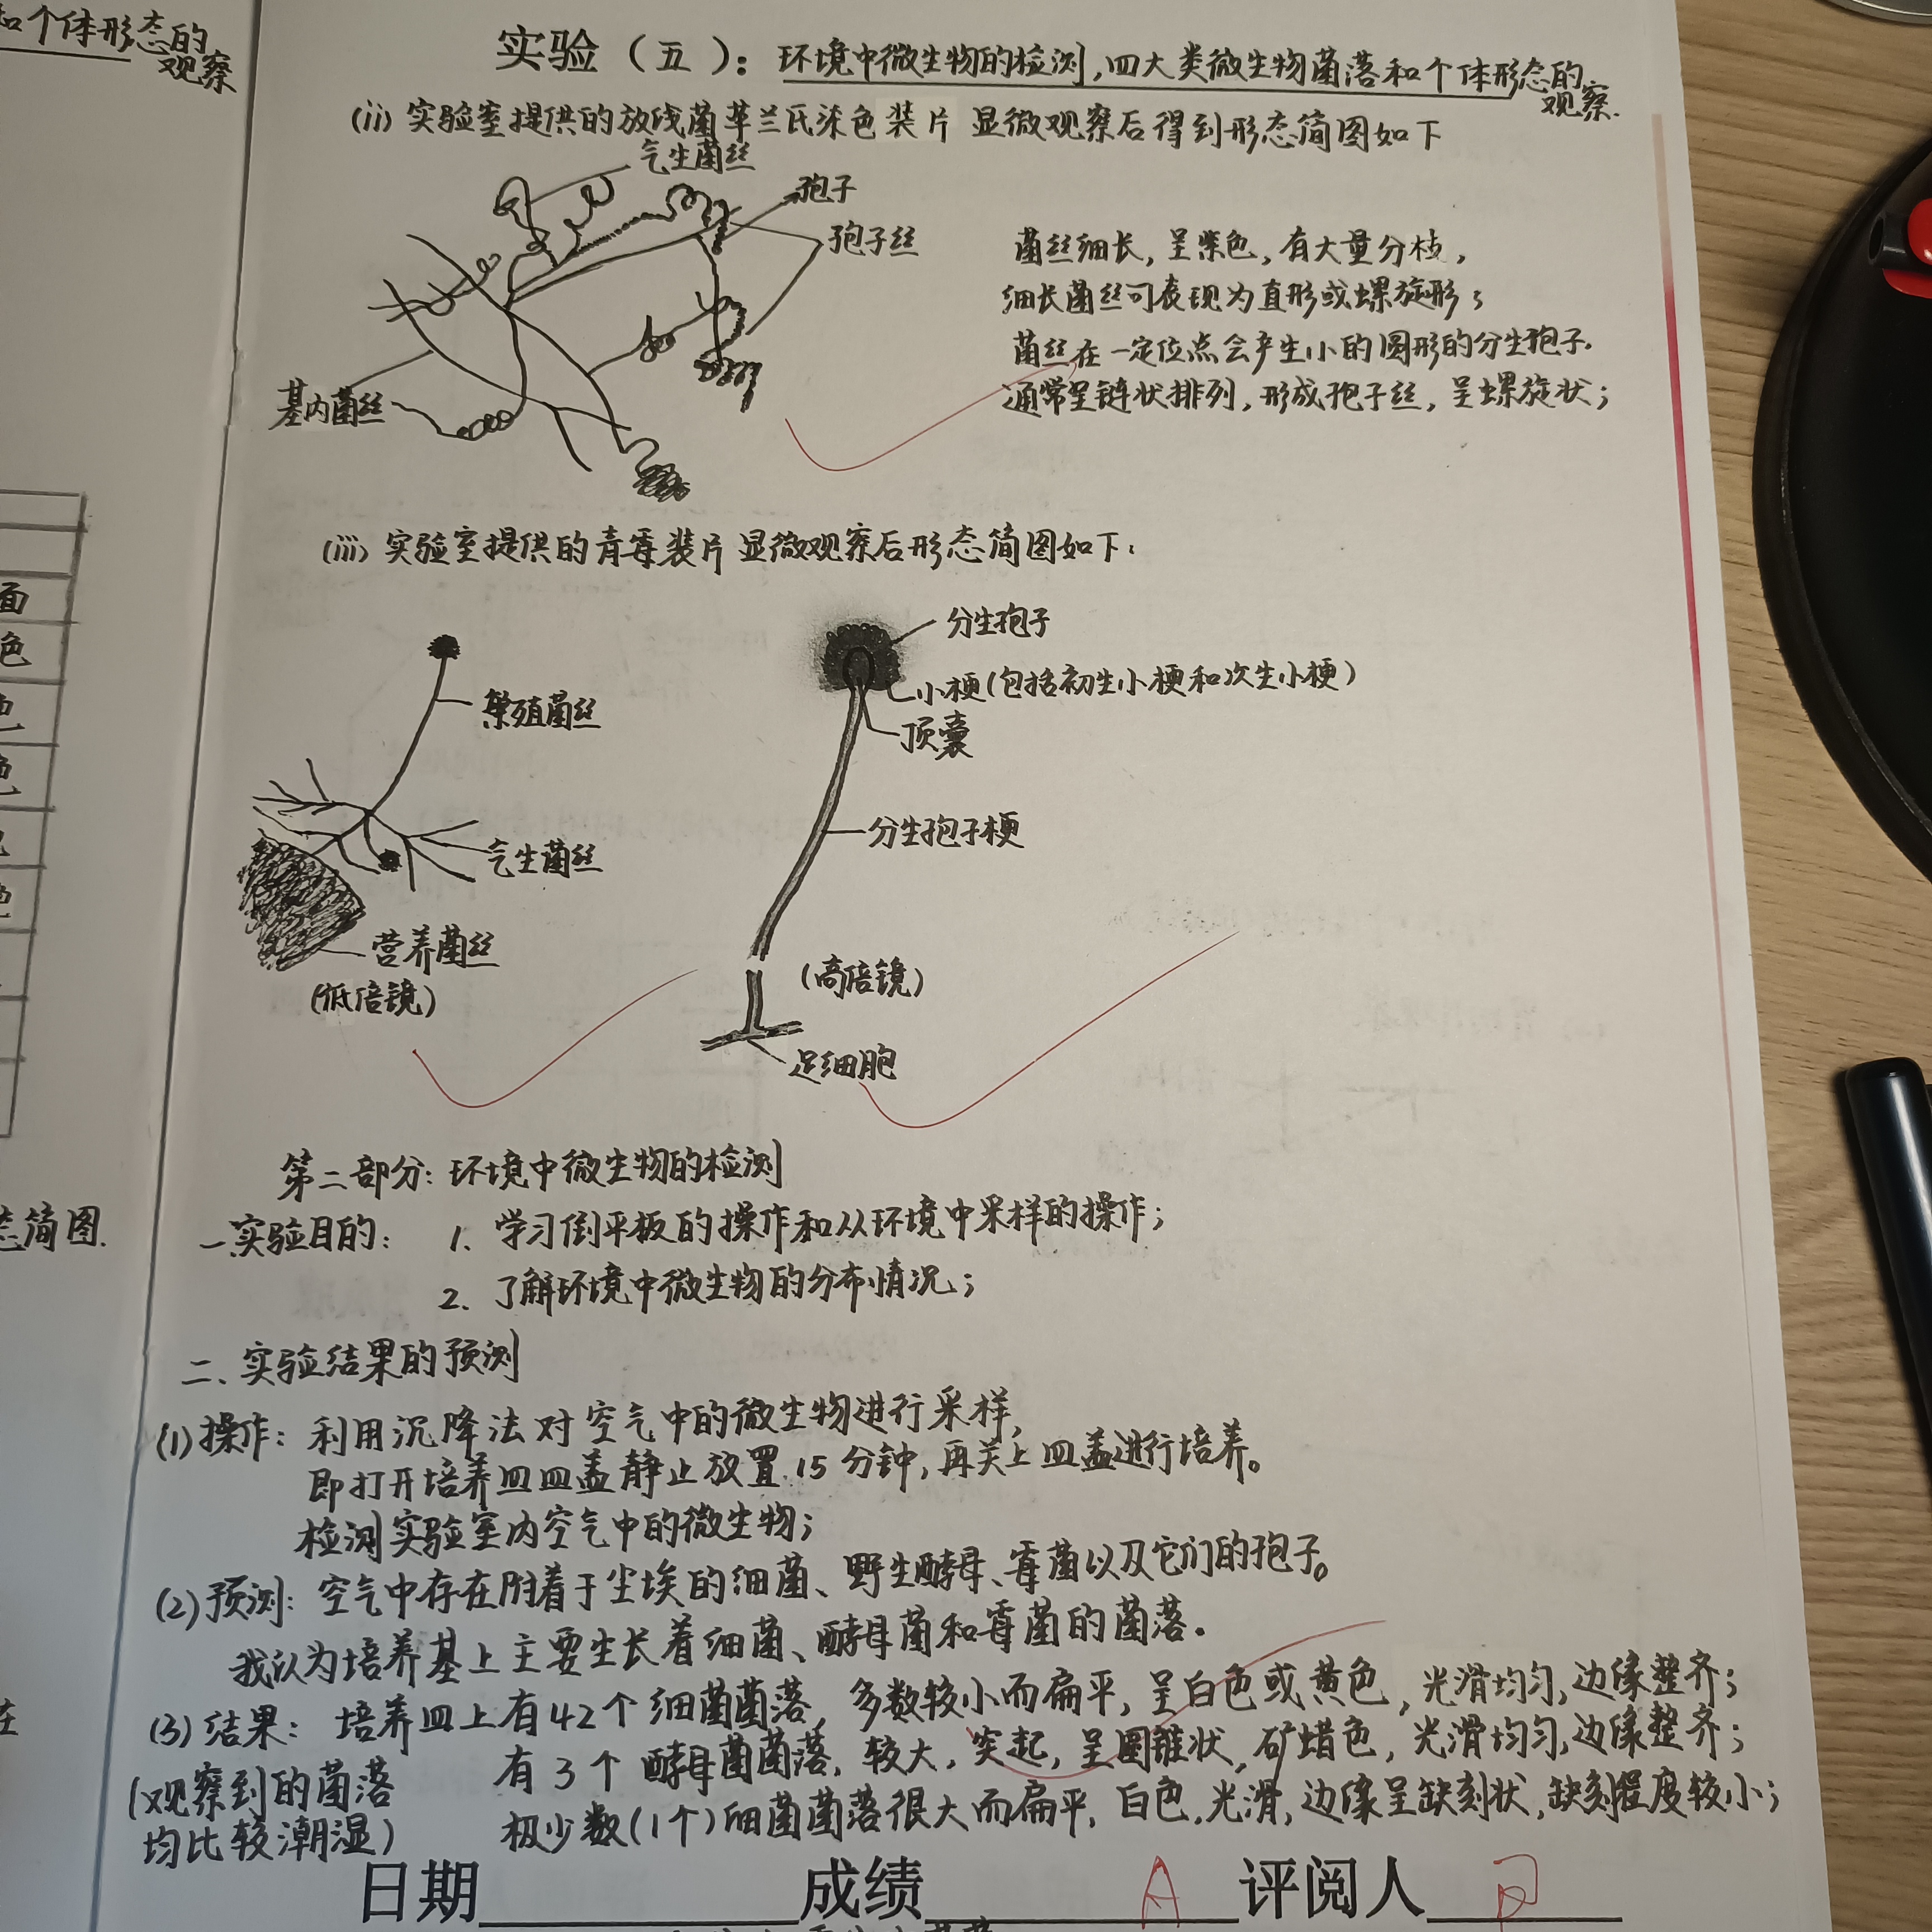 和个体形态的
观察
面
色
色
色
色
态简图.
实验（五）：环境中微生物的检测,四大类微生物菌落和个体形态的
观察.
(ii) 实验室提供的放线菌革兰氏染色装片 显微观察后得到形态简图如下
气生菌丝
孢子
孢子丝
基内菌丝
菌丝细长，呈紫色，有大量分枝，
细长菌丝可表现为直形或螺旋形；
菌丝在一定位点会产生小的圆形的分生孢子.
通常呈链状排列，形成孢子丝，呈螺旋状；
(iii) 实验室提供的青霉装片 显微观察后形态简图如下：
分生孢子
小梗(包括初生小梗和次生小梗)
繁殖菌丝
顶囊
分生孢子梗
气生菌丝
营养菌丝
(低倍镜)
(高倍镜)
足细胞
第二部分：环境中微生物的检测
一实验目的： 1. 学习倒平板的操作和从环境中采样的操作；
2. 了解环境中微生物的分布情况；
二、实验结果的预测
(1)操作：利用沉降法对空气中的微生物进行采样，
即打开培养皿皿盖静止放置15分钟，再关上皿盖进行培养。
检测实验室内空气中的微生物；
(2)预测：空气中存在附着于尘埃的细菌、野生酵母、霉菌以及它们的孢子。
我认为培养基上主要生长着细菌、酵母菌和霉菌的菌落.
(3)结果：培养皿上有42个细菌菌落，多数较小而扁平，呈白色或黄色，光滑均匀，边缘整齐；
(观察到的菌落 有3个酵母菌菌落，较大，突起，呈圆锥状，矿蜡色，光滑均匀，边缘整齐；
均比较潮湿) 极少数(1个)细菌菌落很大而扁平，白色，光滑，边缘呈缺刻状，缺刻程度较小；
日期 成绩 A 评阅人